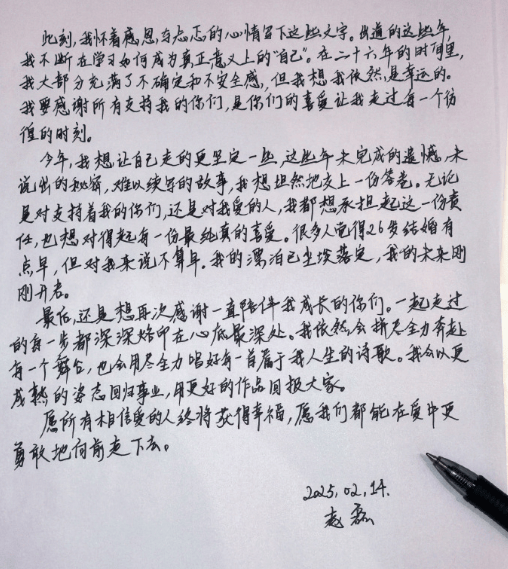 此刻,我怀着感恩,与忐忑的心情留下这些文字。出道的这些年,
我不断在学习如何成为真正意义上的“自己”。在二十六年的时间里,
我大部分充满了不确定和不安全感,但我想我依然是幸运的。
我要感谢所有支持我的你们,是你们的喜爱让我走过每一个彷
徨的时刻。
今年,我想让自己走的更坚定一些,这些年未完成的遗憾,未
说出的秘密,难以续写的故事,我想坦然把交上一份答卷。无论
是对支持着我的你们,还是对我爱的人,我都想承担起这一份责
任,也想对得起每一份最纯真的喜爱。很多人觉得26岁结婚有
点早,但对我来说不算早。我的漂泊已尘埃落定,我的未来刚
刚开启。
最后,还是想再次感谢一直陪伴我成长的你们。一起走过
的每一步都深深烙印在心底最深处。我依然会拼尽全力奔赴
每一个舞台,也会用尽全力唱好每一首属于我人生的诗歌。我会以更
成熟的姿态回归事业,用更好的作品回报大家。
愿所有相信爱的人终将获得幸福,愿我们都能在爱中更
勇敢地向前走下去。
2025.02.14.
赵磊